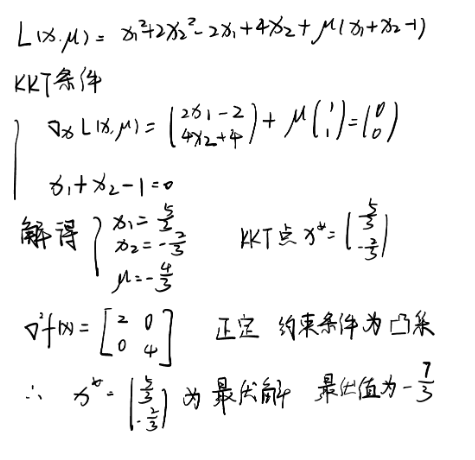 L(x.μ) = x₁²+2x₂²-2x₁+4x₂+μ(x₁+x₂-1)
KKT条件
∇ₓL(x,μ) = (2x₁-2 4x₂+4) + μ(1 1) = (0 0)
x₁+x₂-1=0
解得 { x₁=5/3 x₂=-2/3 μ=-4/3 KKT点 x* = (5/3 -2/3)
∇²f(x) = [2 0 0 4] 正定 约束条件为凸集
∴ x* = (5/3 -2/3) 为最优解 最优值为-7/3